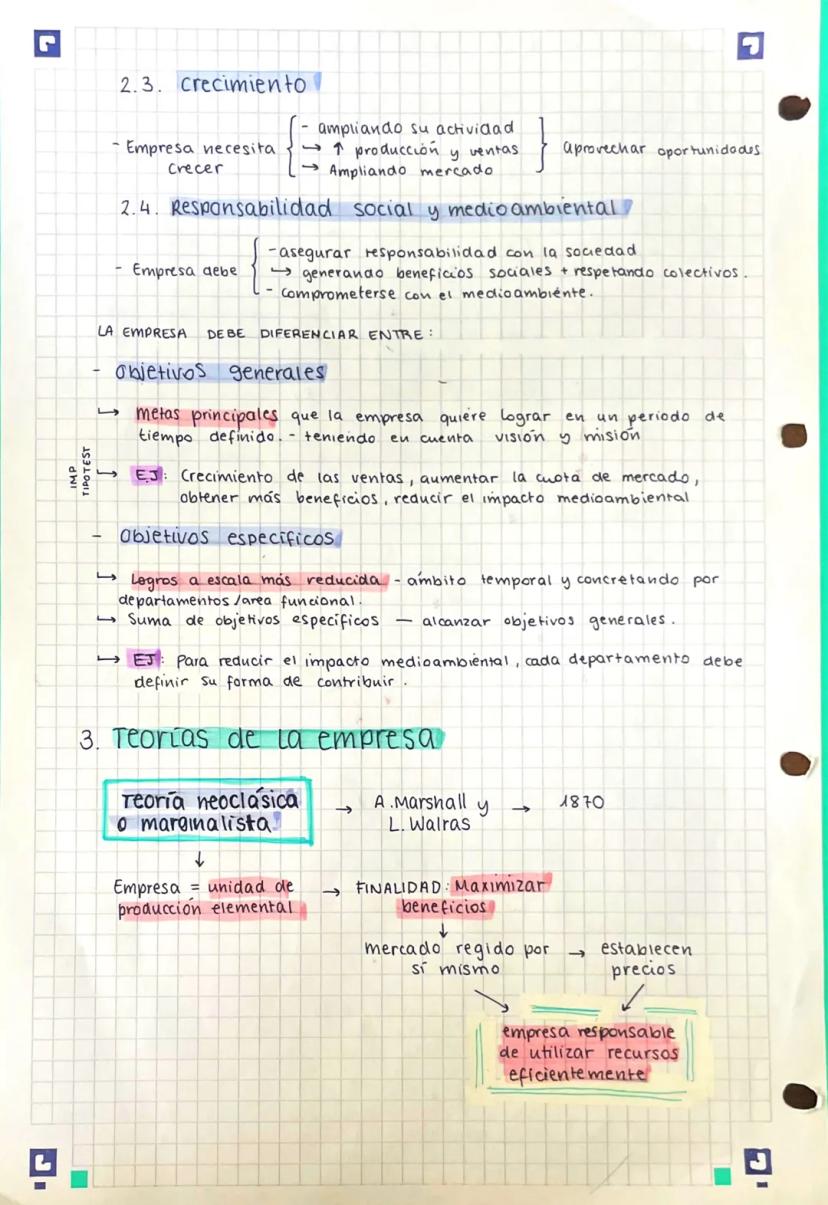 2.3. crecimiento
- Empresa necesita crecer
- ampliando su actividad
↳ ↑ producción y ventas
→ Ampliando mercado
aprovechar oportunidades
2.4. Responsabilidad social y medioambiental
- Empresa debe
- asegurar responsabilidad con la sociedad
↳ generando beneficios sociales + respetando colectivos.
- comprometerse con el medioambiente.
LA EMPRESA DEBE DIFERENCIAR ENTRE:
- Objetivos generales
↳ Metas principales que la empresa quiere lograr en un periodo de
tiempo definido. - teniendo en cuenta visión y misión
IMP
TIPOTEST
↳ EJ: Crecimiento de las ventas, aumentar la cuota de mercado,
obtener más beneficios, reducir el impacto medioambiental
- Objetivos específicos
↳ Logros a escala más reducida - ámbito temporal y concretando por
departamentos/area funcional.
↳ Suma de objetivos específicos — alcanzar objetivos generales.
↳ EJ: Para reducir el impacto medioambiental, cada departamento debe
definir su forma de contribuir.
3. Teorías de la empresa
Teoría neoclásica
o marginalista
→ A. Marshall y
L. Walras
→ 1870
↓
Empresa = unidad de
producción elemental
→ FINALIDAD: Maximizar
beneficios
↓
mercado regido por
sí mismo
→ establecen
precios
empresa responsable
de utilizar recursos
eficientemente